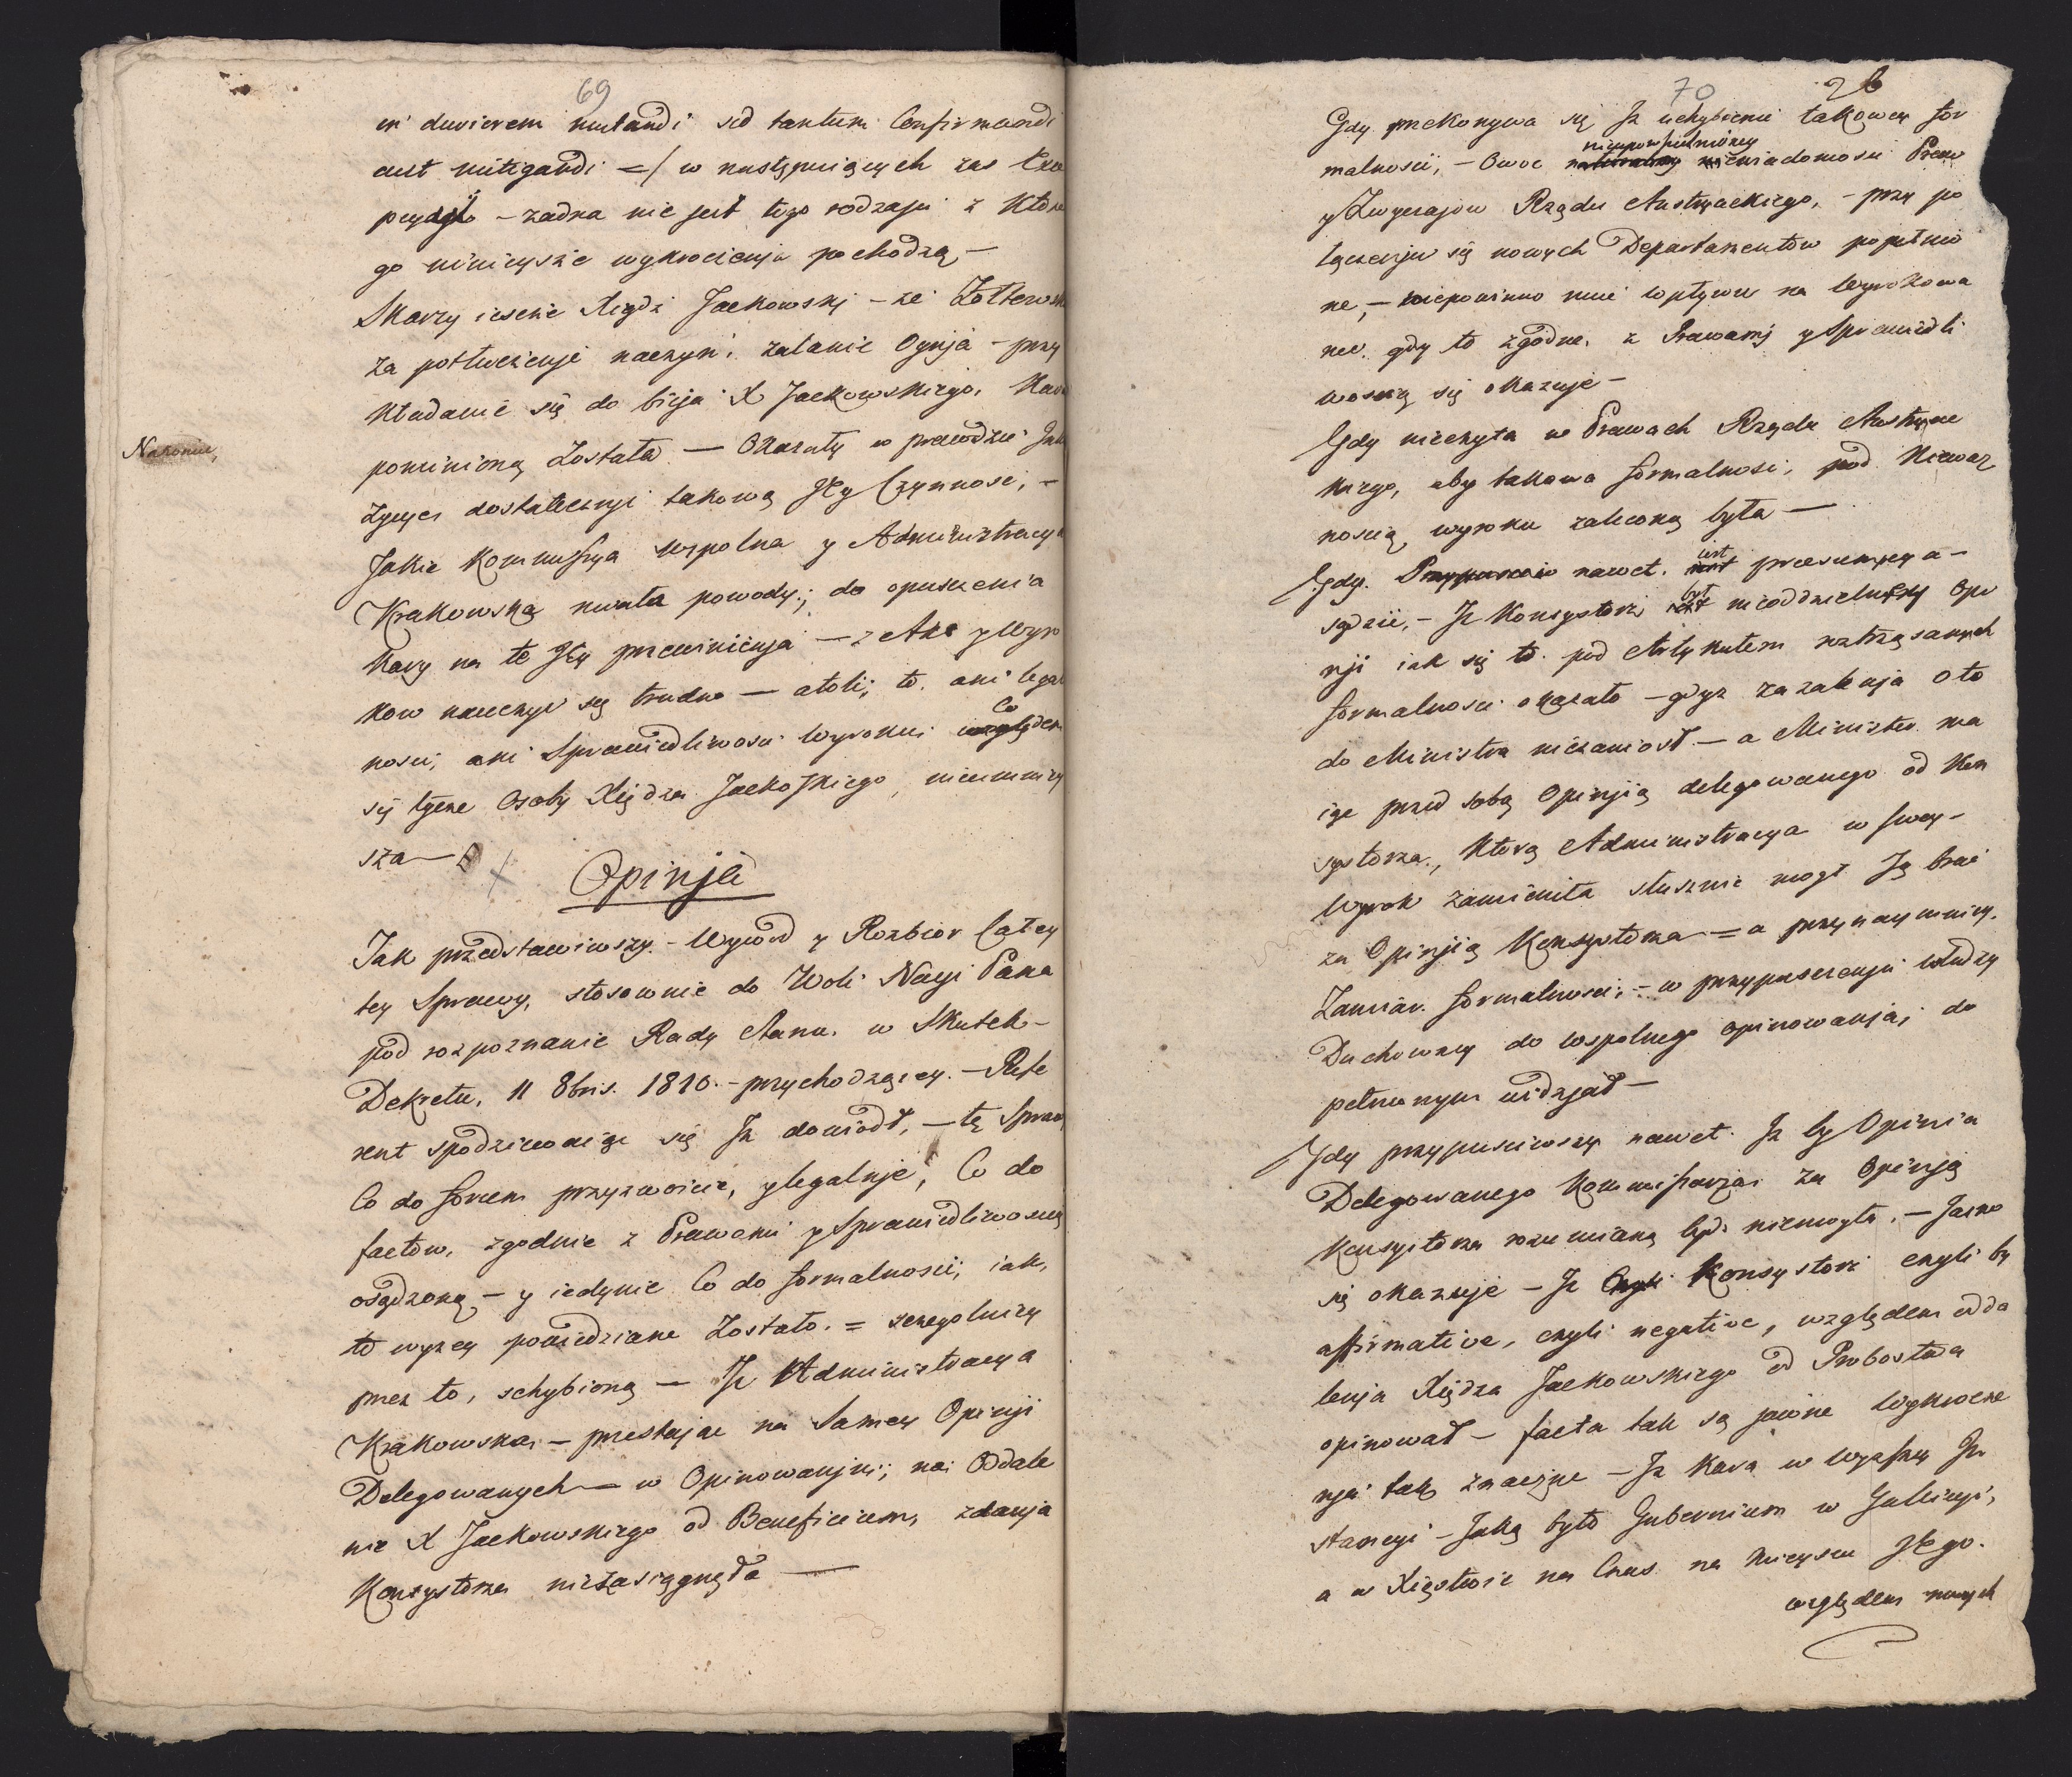 69
in duriorem mutandi sed tantum Confirmandi
aut mitigandi =/ w następuiących zas Exce
pcyach – zadna nie jest tego rodzaju z które
go ninieysze wykroczenja pochodzą –
Skarży ieszcze Xiądz Jackowski – że Zołtowsk
za potłuczenje naczyń i zalanie Ognja – przy
kładanie się do bicja X Jackowskiego, Kar
Nakoniec,
pominioną Została. — Okazały w prawdzie
dostatecznje takową Jey Czynnosc, –
Jakie Kommissya wspolna y Administracya
Krakowska miała powody; do opuszczenia
Kary na te Jey przewinienja — z Akt y Wyro
kow nauczyc się trudno — atoli; to. ani legal
nosci, ani Sprawiedliwosci Wyroku; Co
się tycze Osoby Xiędza Jackoskiego, nieumniey
sza —
Opinja
Jak przedstawiwszy. – Wywod y Rozbior Całey
tey Sprawy, stosownie do Woli Nayj Pana
pod rozpoznanie Rady Stanu. w Skutek –
Dekretu, 11 8bris. 1810. – przychodzącey. – Refe
rent spodziewaiąc się Iz dowiodł, – tę Spraw
Co do forum przyzwoicie, y legalnje, Co do
factow, zgodnie z Prawami y Sprawiedliwoscią
osądzoną, – y iedynie Co do formalności, iak,
to wyzey powiedziane Zostało. = szczegolniey
przez to, uchybioną — Iz Administracya
Krakowska, – przestając na Samey Opinji
Delegowanych — w Opinowanju; na Oddale
nie X Jackowskiego od Beneficium, zdanja
Konsystorza niezasiągnęła —
70
26
Gdy. przekonywa się Iz uchybienie takowey for
malnosci, – Owoc
nieupowszechnioney
niewiadomosci Praw
y Zwyczajow Rządu Austryackiego, – przy po
łączenju się nowych Departamentow popełnio
ne, – niepowinno miec wpływu na Wyrokowa
nie. gdy to zgodne. z Prawami y Sprawiedli
woscią się okazuje –
Gdy nieczyta w Prawach Rządu Austryac
kiego, aby takowa formalnosc, pod Niewaz
noscią wyroku zaleconą była —
Gdy. Przypuscic nawet. iest presumpcya –
sądzic, – Iz Konsystorz był nieoddzielney Opi
nji iak się to. pod Artykułem roztrząsanych
formalnosci okazało – gdyz zazalenja oto
do Ministra niezaniosł. — a Minister ma
iąc przed sobą Opinjią delegowanego od Kon
systorza., Ktorą Administracya w swey –
Wyrok zamieniła słusznie mogł Ją brac
za Opinjią Konsystorza = a przynaymniey.
Zamiar. formalnosci; – w przypuszczenju władzy
Duchowney do wspolnego opinowanja; do
pełnionym widzjał —
Gdy przypusciwszy nawet. Iz by Opinia
Delegowanego Kommissarza za Opinją
Konsystorza rozumianą byc niemogła, – Jasno
się okazuje – Iz Konsystorz czyli by
affirmative, czyli negative, względem odda
lenja Xiędza Jackowskiego od Probostwa
opinował – facta tak są jawne Wykrocze
nja tak znaczne – Iz Kara w Wyzszey In
stancyi – Jaką było Gubernium w Galicyi,
a w Xięstwie na Czas na mieyscu Jego.
względem nowych